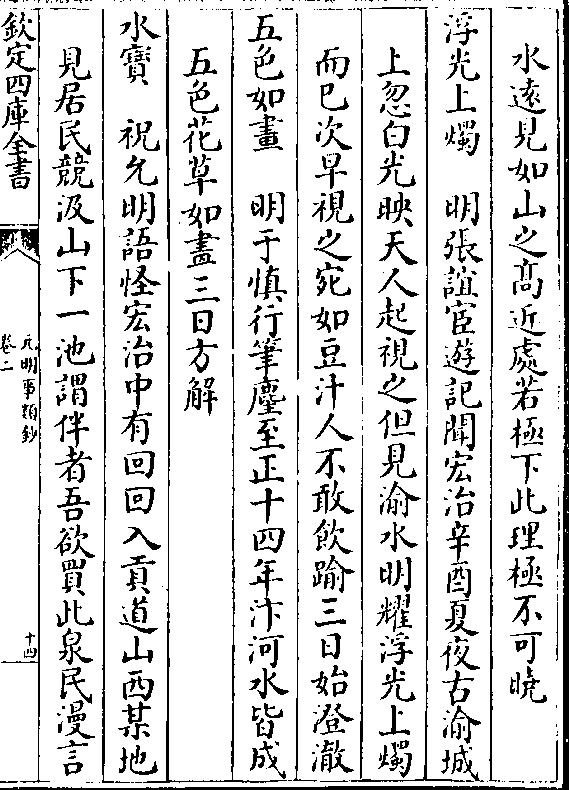 水逺見如山之髙近處若極下此理極不可曉
浮光上燭　明張誼宦遊記聞宏治辛酉夏夜古渝城
上忽白光映天人起視之但見渝水明耀浮光上燭
而已次早視之宛如豆汁人不敢飲踰三日始澄澈
五色如畫　明于慎行筆麈至正十四年汴河水皆成
五色花草如畫三日方解
水寶　祝允明語怪宏治中有回回入貢道山西某地
見居民競汲山下一池謂伴者吾欲買此泉民漫言
欽定四庫全書
元明事類鈔
卷二
十四